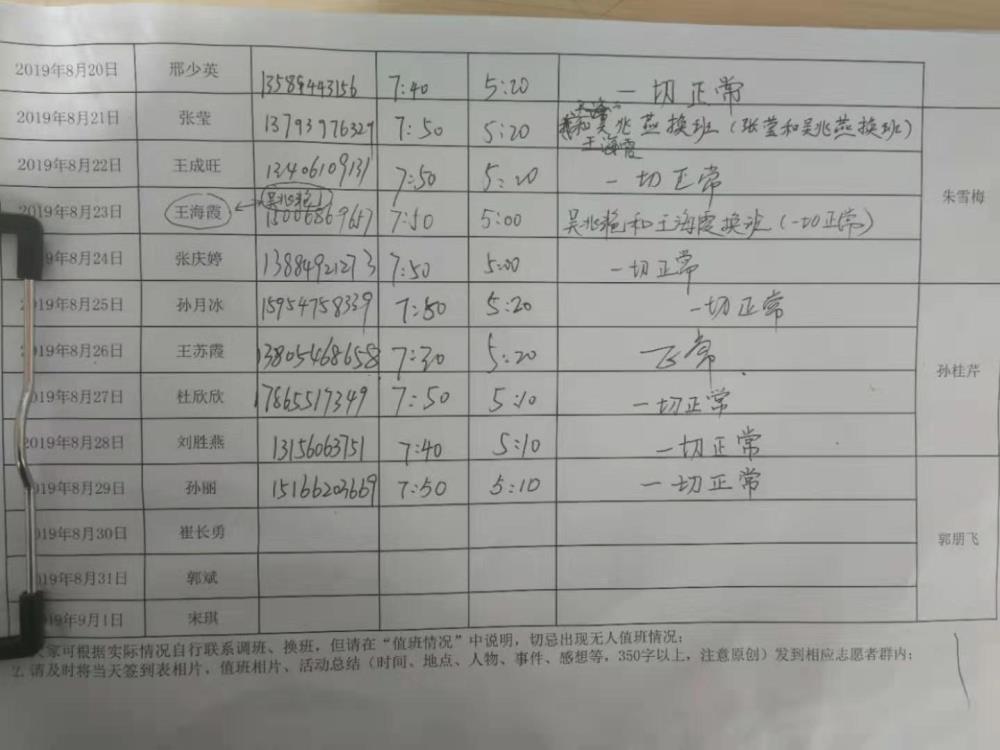 2019年8月20日 邢少英 13589443156 7:40 5:20 一切正常
2019年8月21日 张莹 13793976329 7:50 5:20 和吴兆燕换班（张莹和吴兆燕换班）
王海霞
2019年8月22日 王成旺 13406109131 7:50 5:20 一切正常 朱雪梅
吴兆艳
2019年8月23日 王海霞 15006869657 7:50 5:00 吴兆艳和王海霞换班（一切正常）
2019年8月24日 张庆婷 13884921273 7:50 5:00 一切正常
2019年8月25日 孙月冰 15954758339 7:50 5:20 一切正常
2019年8月26日 王苏霞 13805468658 7:30 5:20 正常 孙桂芹
2019年8月27日 杜欣欣 17865517349 7:50 5:10 一切正常
2019年8月28日 刘胜燕 13156063751 7:40 5:10 一切正常
2019年8月29日 孙丽 15166203669 7:50 5:10 一切正常
2019年8月30日 崔长勇 郭朋飞
2019年8月31日 郭斌
2019年9月1日 宋琪
大家可根据实际情况自行联系调班、换班，但请在“值班情况”中说明，切忌出现无人值班情况；
2. 请及时将当天签到表相片、值班相片、活动总结（时间、地点、人物、事件、感想等，350字以上，注意原创）发到相应志愿者群内；